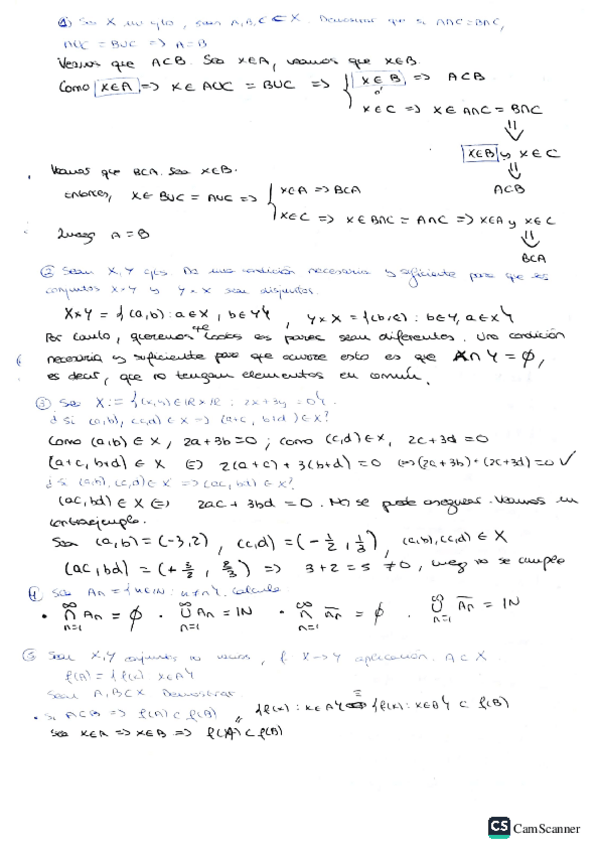 ① Sea X un cjto, sean A,B,C ⊂ X. Demostrar que si A∩C=B∩C,
A∪C = B∪C => A=B
Veamos que A⊂B. Sea x∈A, veamos que x∈B.
Como x∈A => x∈A∪C = B∪C => { x∈B => A⊂B
o
x∈C => x∈A∩C = B∩C
⇓
x∈B y x∈C
⇓
A⊂B
Veamos que B⊂A. Sea x∈B.
Entonces, x∈B∪C = A∪C => { x∈A => B⊂A
x∈C => x∈B∩C = A∩C => x∈A y x∈C
⇓
B⊂A
Luego A=B
② Sean X,Y cjtos. Da una condición necesaria y suficiente para que los
conjuntos X×Y y Y×X sean disjuntos.
X×Y = {(a,b): a∈X, b∈Y}, Y×X = {(b,a): b∈Y, a∈X}
Por tanto, queremos que todos los pares sean diferentes. Una condición
necesaria y suficiente para que ocurra esto es que X∩Y = ∅,
es decir, que no tengan elementos en común.
③ Sea X := {(x,y)∈ℝ×ℝ : 2x+3y=0}.
¿Si (a,b), (c,d)∈X => (a+c, b+d)∈X?
Como (a,b)∈X, 2a+3b=0; como (c,d)∈X, 2c+3d=0
(a+c, b+d)∈X ⇔ 2(a+c)+3(b+d)=0 ⇔ (2a+3b)+(2c+3d)=0 ✓
¿Si (a,b), (c,d)∈X => (ac, bd)∈X?
(ac, bd)∈X ⇔ 2ac+3bd=0. No se puede asegurar. Veamos un
contraejemplo.
Sea (a,b)=(-3,2), (c,d)=(-1/2, 1/3), (a,b),(c,d)∈X
(ac, bd)=(+3/2, 2/3) => 3+2=5≠0, luego no se cumple
④ Sea An = {k∈ℕ: }. Calcula
• ∞∩n=1 An = ∅ • ∞∪n=1 An = ℕ • ∞∩n=1 A̅n = ∅ • ∞∪n=1 A̅n = ℕ
⑤ Sean X,Y conjuntos no vacíos, f: X→Y aplicación. A⊂X
f(A) = {f(x): x∈A}
Sean A,B⊂X. Demostrar
• Si A⊂B => f(A)⊂f(B) {f(x): x∈A} {f(x): x∈B} ⊂ f(B)
Sea x∈A => x∈B => f(A)⊂f(B)
CS CamScanner